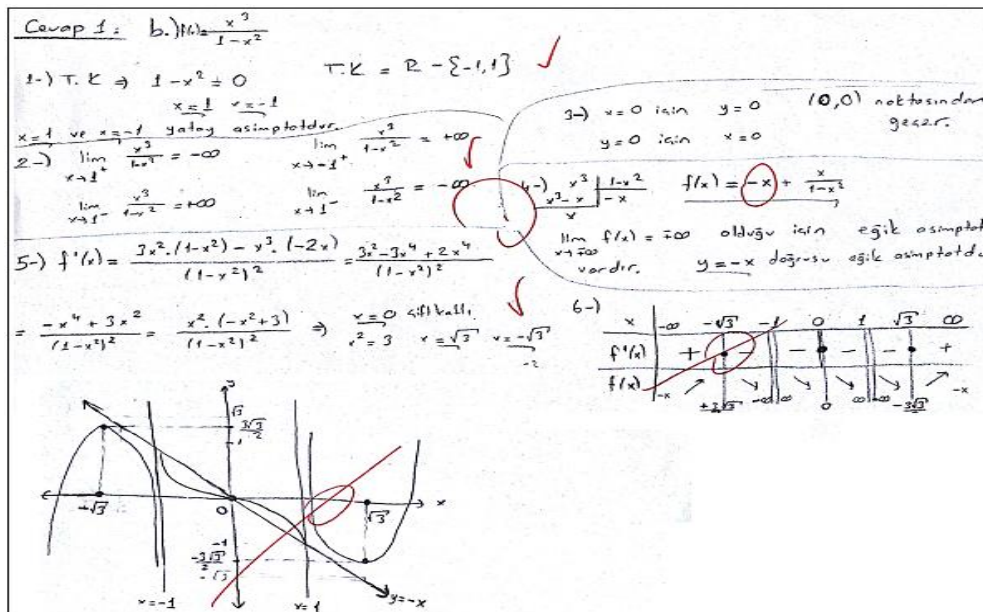 Cevap 1: b.) f(x)= x³/(1-x²)
1-) T.K ⇒ 1-x² ≠ 0 T.K = R - {-1,1}
x=1 x=-1
x=1 ve x=-1 yatay asimptotdur.
2-) lim x→1⁺ x³/(1-x²) = -∞ lim x→-1⁺ x³/(1-x²) = +∞
lim x→1⁻ x³/(1-x²) = +∞ lim x→1⁻ x³/(1-x²) = -∞
3-) x=0 için y=0 (0,0) noktasından
geçer.
y=0 için x=0
4-) x³ | 1-x²
x³-x | -x
x
f(x) = -x + x/(1-x²)
lim x→∓∞ f(x) = ∓∞ olduğu için eğik asimptot
vardır. y=-x doğrusu eğik asimptotdu
5-) f'(x) = (3x².(1-x²) - x³.(-2x))/(1-x²)² = (3x²-3x⁴+2x⁴)/(1-x²)²
= (-x⁴+3x²)/(1-x²)² = (x².(-x²+3))/(1-x²)² ⇒ x=0 çift katlı
x²=3 x=√3 x=-√3
6-)
x -∞ -√3 -1 0 1 √3 ∞
f'(x) + - - - - +
f(x) -x ↗ ↘ ↘ ↘ ↘ ↗ -x
-∞ ∞ 0 ∞ ∞ -3√3
y
√3
3√3/2
1
-√3 0 √3 x
-1
-3√3/2
-√3
x=-1 x=1 y=-x